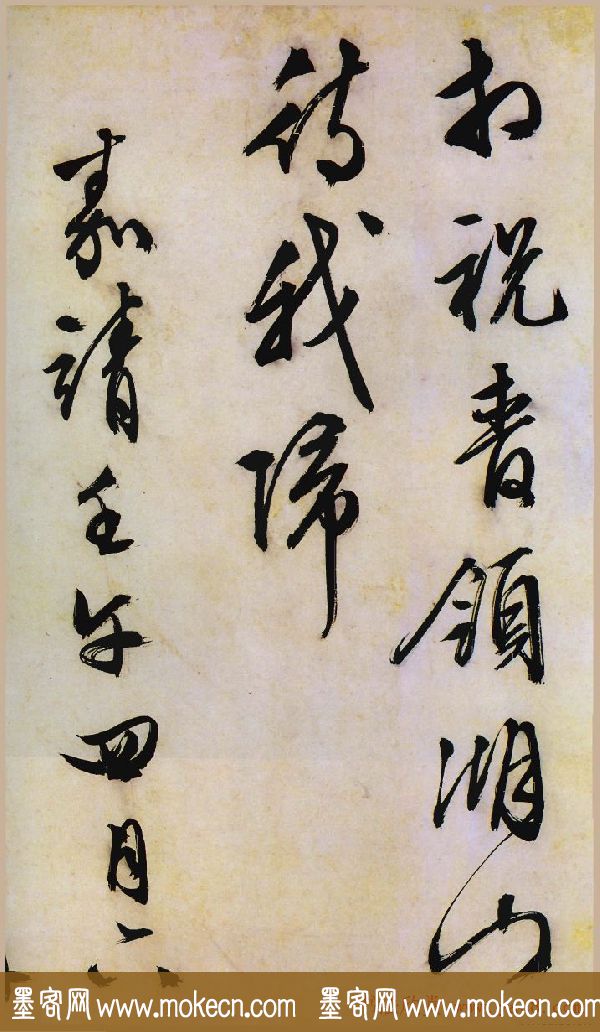 祝領湖山
待我歸
嘉靖壬午四月六
墨客网 www.mokecn.com 墨客网 www.mokecn.com